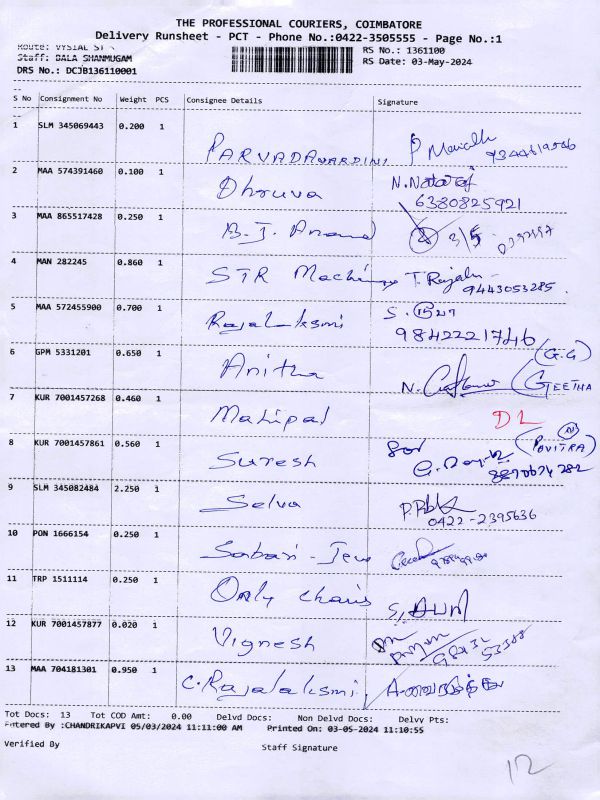 THE PROFESSIONAL COURIERS, COIMBATORE
Delivery Runsheet - PCT - Phone No.:0422-3505555 - Page No.:1
Route: VYSIAL ST
RS No.: 1361100
Staff: BALA SHANMUGAM
RS Date: 03-May-2024
DRS No.: DCJB136110001
S No Consignment No Weight PCS Consignee Details Signature
1 SLM 345069443 0.200 1 PARVADAVARDINI P
2 MAA 574391460 0.100 1 Dhruva N.Nataraj
6380825921
3 MAA 865517428 0.250 1 B.J. Anand 3/5
4 MAN 282245 0.860 1 STR T. Rajalu
9443053285.
5 MAA 572455900 0.700 1 Rajalaksmi S.
9842221746
6 GPM 5331201 0.650 1 Anitha N. (G.G)
(GEETHA
7 KUR 7001457268 0.460 1 Mahipal DL
8 KUR 7001457861 0.560 1 Suresh (POVITRA)
9 SLM 345082484 2.250 1 Selva
0422-2395636
10 PON 1666154 0.250 1 Sabari - Jew
11 TRP 1511114 0.250 1 Only chairs
12 KUR 7001457877 0.020 1 Vignesh
13 MAA 704181301 0.950 1 C.Rajalaksmi
Tot Docs: 13 Tot COD Amt: 0.00 Delvd Docs: Non Delvd Docs: Delvy Pts:
Entered By :CHANDRIKAPVI 05/03/2024 11:11:00 AM Printed On: 03-05-2024 11:10:55
Verified By Staff Signature
12